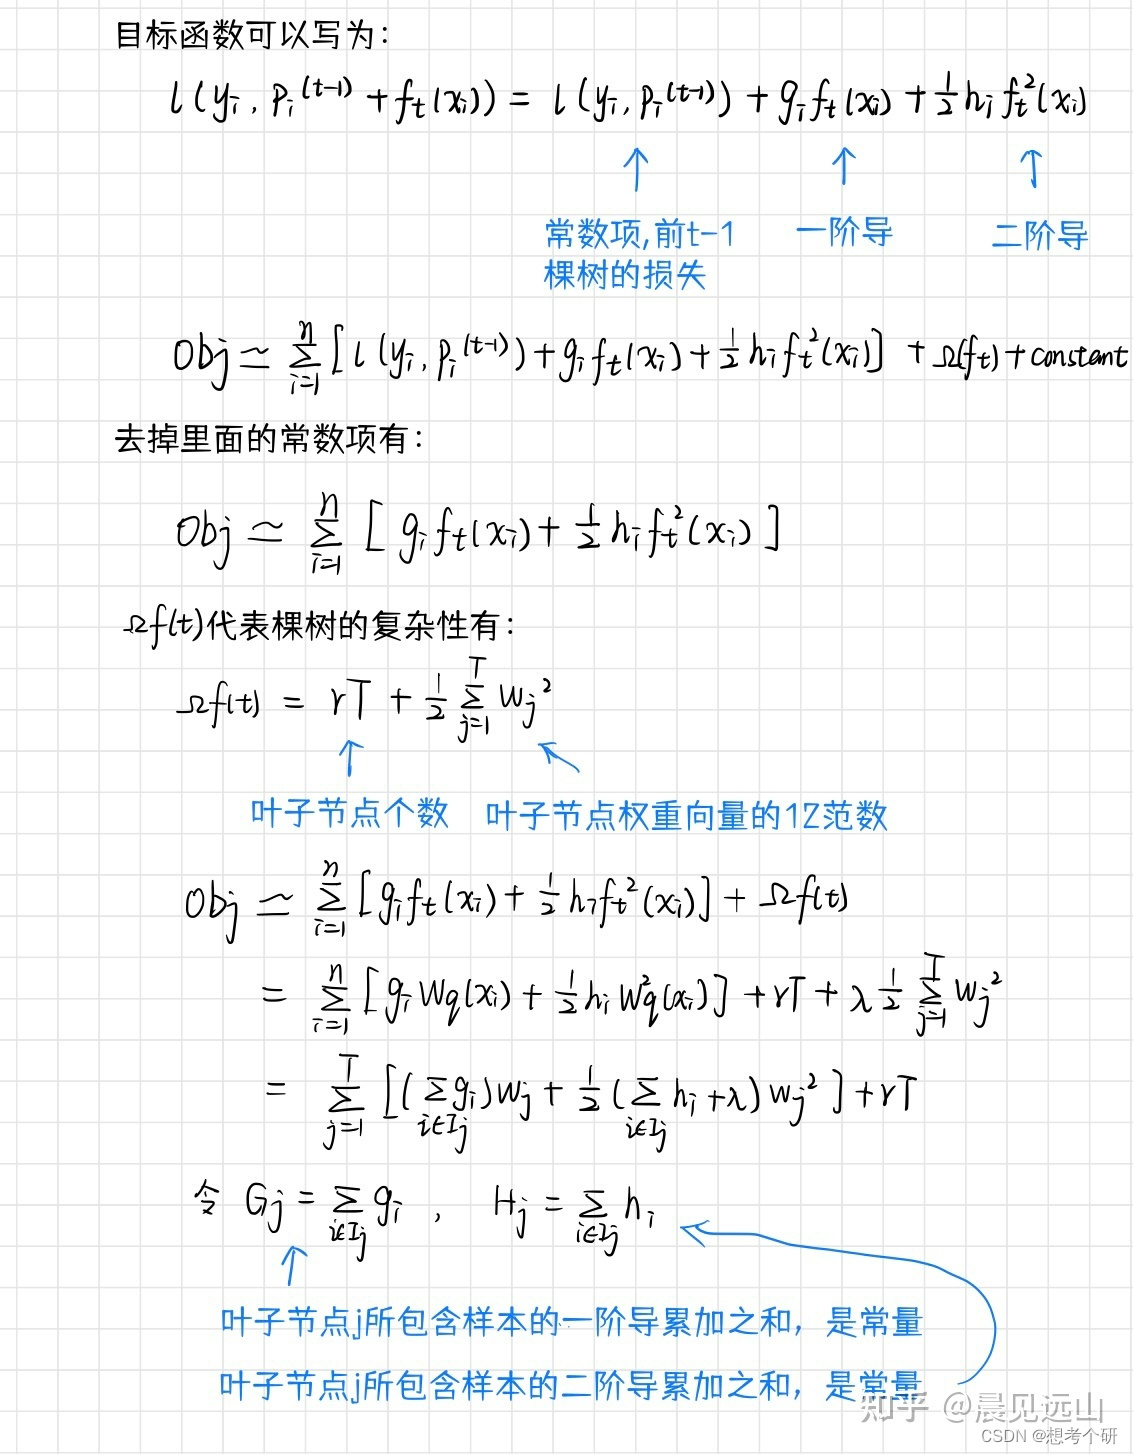 目标函数可以写为:
l(yᵢ, pᵢ⁽ᵗ⁻¹⁾ + fₜ(xᵢ)) = l(yᵢ, pᵢ⁽ᵗ⁻¹⁾) + gᵢfₜ(xᵢ) + ½hᵢfₜ²(xᵢ)
常数项,前t-1 一阶导 二阶导
棵树的损失
Obj ≃ ∑ᵢ₌₁ⁿ [l(yᵢ, pᵢ⁽ᵗ⁻¹⁾) + gᵢfₜ(xᵢ) + ½hᵢfₜ²(xᵢ)] + Ω(fₜ) + constant
去掉里面的常数项有:
Obj ≃ ∑ᵢ₌₁ⁿ [gᵢfₜ(xᵢ) + ½hᵢfₜ²(xᵢ)]
Ωf(t)代表棵树的复杂性有:
Ωf(t) = rT + ½ ∑ⱼ₌₁ᵀ wⱼ²
叶子节点个数 叶子节点权重向量的12范数
Obj ≃ ∑ᵢ₌₁ⁿ [gᵢfₜ(xᵢ) + ½hᵢfₜ²(xᵢ)] + Ωf(t)
= ∑ᵢ₌₁ⁿ [gᵢWq(xᵢ) + ½hᵢW²q(xᵢ)] + rT + λ½ ∑ⱼ₌₁ᵀ wⱼ²
= ∑ⱼ₌₁ᵀ [(∑_{i∈Iⱼ} gᵢ)wⱼ + ½(∑_{i∈Iⱼ} hᵢ + λ)wⱼ²] + rT
令 Gⱼ = ∑_{i∈Iⱼ} gᵢ , Hⱼ = ∑_{i∈Iⱼ} hᵢ
叶子节点j所包含样本的一阶导累加之和，是常量
叶子节点j所包含样本的二阶导累加之和，是常量
知乎 @晨见远山
CSDN @想考个研